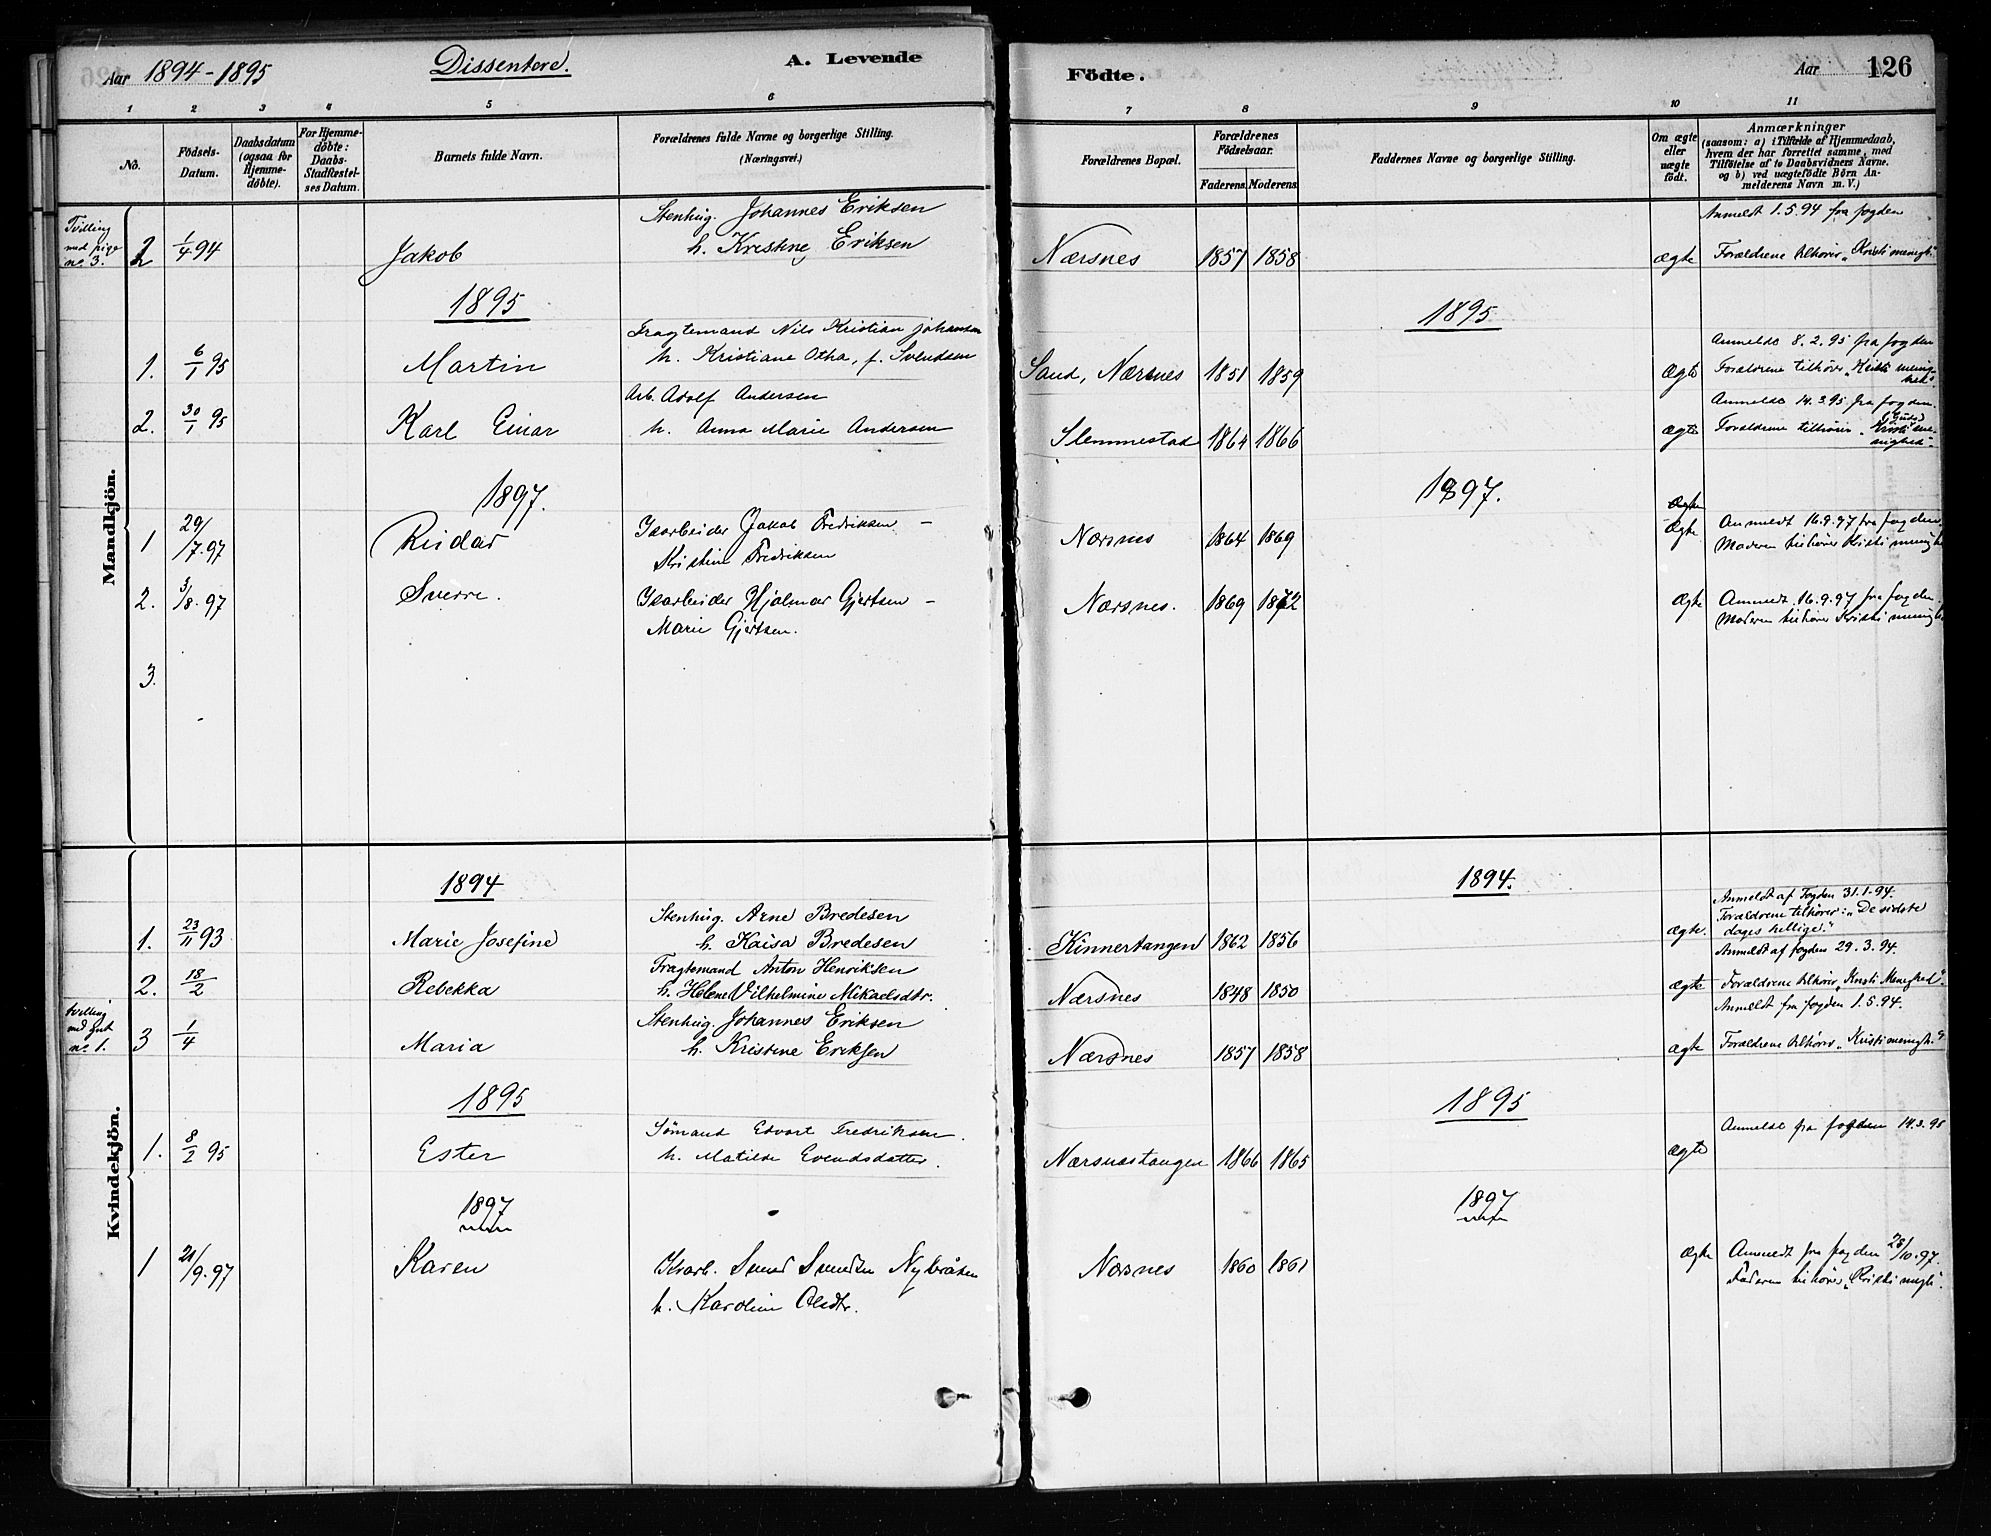 Aar 1894-1895 Dissentere. A. Levende
Födte. Aar 126
1 2 3 4 5 6
7 8 9 10 11
No. Födsels-Datum. Daabsdatum (ogsaa for Hjemmedöbte). For Hjemmedöbte: Daabs-Stadfæstelses Datum. Barnets fulde Navn. Forældrenes fulde Navne og borgerlige Stilling. (Næringsvei.)
Forældrenes Bopæl. Forældrenes Födselsaar. Faderens. Moderens. Faddernes Navne og borgerlige Stilling. Om ægte eller uægte födt. Anmærkninger (saasom: a) i Tilfælde af Hjemmedaab, hvem der har forrettet samme, med Tilföielse af to Daabsvidners Navne. og b) ved uægtefödte Börn Anmelderens Navn m. V.)
Mandkjön.
Tvilling med pige no 3.
2 1/4 94 Jakob Stenhug. Johannes Eriksen
h. Kristine Eriksen
Nærsnes 1857 1858 ægte Anmeldt 1.5.94 fra fogden
Forældrene tilhører „Kristi menigh."
1895
1895
1. 6/1 95 Martin Fragtemand Nils Kristian Johansen
h. Kristiane Otha, f. Svendsen
Sand, Nærsnes 1851 1859 Ægte Anmeldt 8.2.95 fra fogden
Forældrene tilhører „Kristi menighed".
2. 30/1 95 Karl Einar Arb. Adolf Andersen
h. Anna Marie Andersen
Slemmestad 1864 1866 ægte Anmeldt 14.3.95 fra fogden.
Forældrene tilhører „Kristi menighed"
1897.
1897.
Ægte
1 29/7.97 Reidar Isarbeider Jakob Fredriksen –
Kristine Fredriksen
Nærsnes 1864 1869 Ægte Anmeldt 16.9.97 fra fogden.
Moderen tilhører Kristi menigh
2. 3/8.97 Sverre. Isarbeider Hjalmar Gjertsen –
Marie Gjertsen.
Nærsnes. 1869 1872 Ægte Anmeldt 16.9.97 fra fogden.
Moderen tilhører Kristi menigh
3.
Kvindekjön.
1894
1894.
1. 23/11 93 Marie Josefine Stenhug. Arne Bredesen
h. Kaisa Bredesen
Kinnertangen 1862 1856 ægte. Anmeldt af Fogden 31.1.94.
Forældrene tilhører: „De sidste
dages hellige."
2. 18/2 Rebekka Fragtemand Anton Henriksen
h. Helene Vilhelmine Mikaelsdtr.
Nærsnes 1848 1850 ægte Anmeldt af fogden 29.3.94.
Forældrene tilhører „Kristi Menighed".
tvilling med gut no 1.
3 1/4 Maria Stenhug. Johannes Eriksen
h. Kristine Eriksen
Nærsnes 1857 1858 ægte Anmeldt fra fogden 1.5.94.
Forældrene tilhører „Kristi menigh."
1895
1895
1. 8/2 95 Ester Sømand Edvart Fredriksen.
h. Matilde Evendsdatter.
Nærsnestangen 1866 1865 ægte Anmeldt fra fogden 14.3.95
1897
1897
1 21/9.97 Karen Isarb. Svend Svendsen Nybråten
h. Karoline Olsdtr.
Nærsnes 1860 1861 Ægte Anmeldt fra fogden 25/10.97.
Faderen tilhører „Kristi megh".